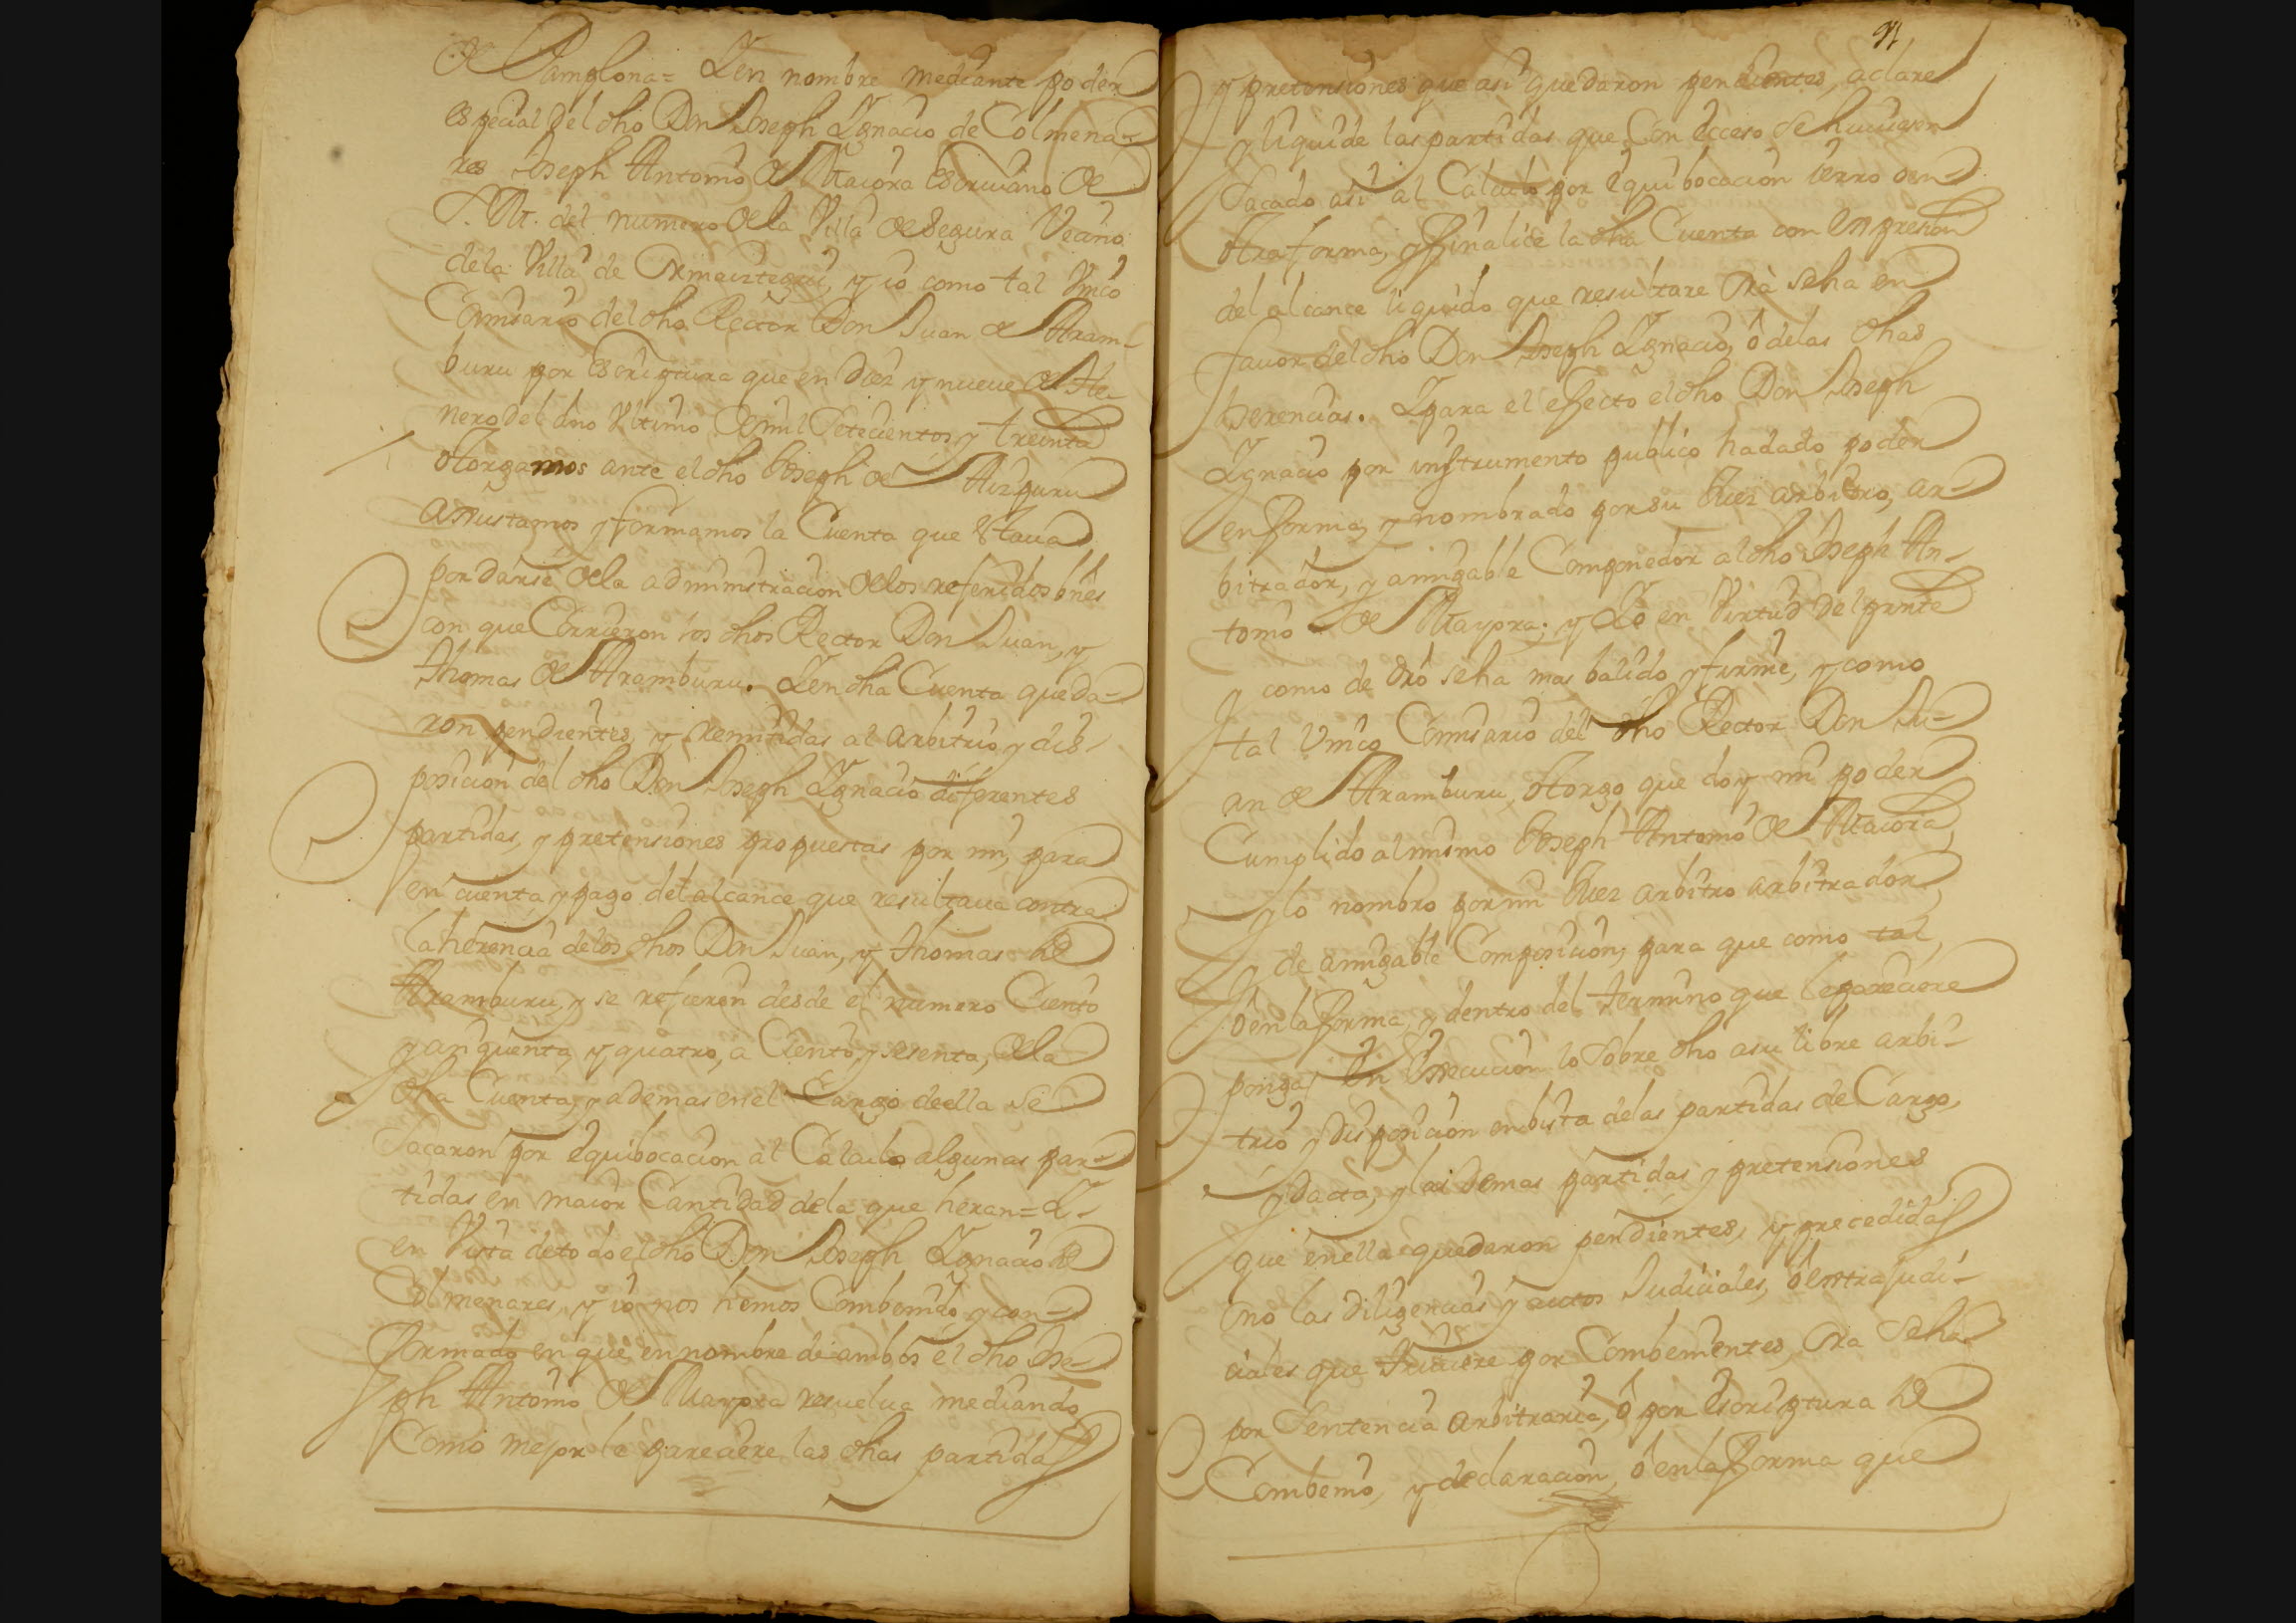 de Pamplona = Y en nombre mediante poder
especial del dho Don Joseph Ygnacio de Colmena-
res Joseph Antonio de Maiora escriuano de
S. M. del numero de la Villa de Segura Vecino
de la Villa de Ormaiztegui, y io como tal Vnico
Comisario del dho Rector Don Juan de Aram-
buru por escriptura que en diez y nueve de He-
nero del año Vltimo de mil Setecientos y treinta
otorgamos ante el dho Joseph de Aizpuru
ajustamos y formamos la Cuenta que estaua
por darse de la administracion de los referidos bnes
con que Corrieron los dhos Rector Don Juan, y
thomas de Aramburu. Y en dha Cuenta queda-
ron pendientes, y remitidas al arbitrio y dis-
posicion del dho Don Joseph Ygnacio diferentes
partidas, y pretensiones propuestas por mi, para
en cuenta y pago del alcance que resultaua contra
la herencia de los dhos Don Juan, y thomas de
Aramburu, y se refieren desde el numero Ciento
y cinquenta y quatro, a Ciento y sesenta, de la
dha Cuenta, y ademas en el Cargo de ella se
Sacaron por equibocacion al Calculo algunas par-
tidas en maior Cantidad de la que heran = Y
en Vista de todo el dho Don Joseph Ygnacio de
Colmenares, y io nos hemos Combenido y con-
formado en que en nombre de ambos el dho Jose-
ph Antonio de Mayora resuelua mediando
Como mejor le pareciere las dhas partidas
91
y pretensiones que asi quedaron pendientes, aclare
y liquide las partidas que Con exceso se huuieren
Sacado asi al Calculo por equibocacion ierro o en
otra forma, y finalice la dha Cuenta con expresion
del alcance liquido que resultare ora seha en
fauor del dho Don Joseph Ygnacio, ô de las dhas
herencias. Y para el efecto el dho Don Joseph
Ygnacio por instrumento publico ha dado poder
en forma, y nombrado por su Juez arbitro, ar-
bitrador, y amigable Componedor al dho Joseph An-
tonio de Mayora; y Yo en Virtud del prnte
y como de dro seha mas balido y firme, y como
tal Vnico Comisario del dho Rector Don Ju-
an de Aramburu, otorgo que doy mi poder
Cumplido al mismo Joseph Antonio de Maiora,
y lo nombro por mi Juez arbitro arbitrador
y de amigable Composicion; para que como tal,
ô en la forma, y dentro del termino que le pareciere
ponga en execucion lo Sobre dho a su libre arbi-
trio y disposicion en bista de las partidas de Cargo,
y dacta, y las demas partidas y pretensiones
que en ella quedaron pendientes, y precedidas
ô no las diligencias y autos Judiciales, ô extrajudi-
ciales que tuuiere por Combenientes, ora Seha
por Sentencia arbitraria, ô por escriptura de
Combenio, y declaracion, ô en la forma que